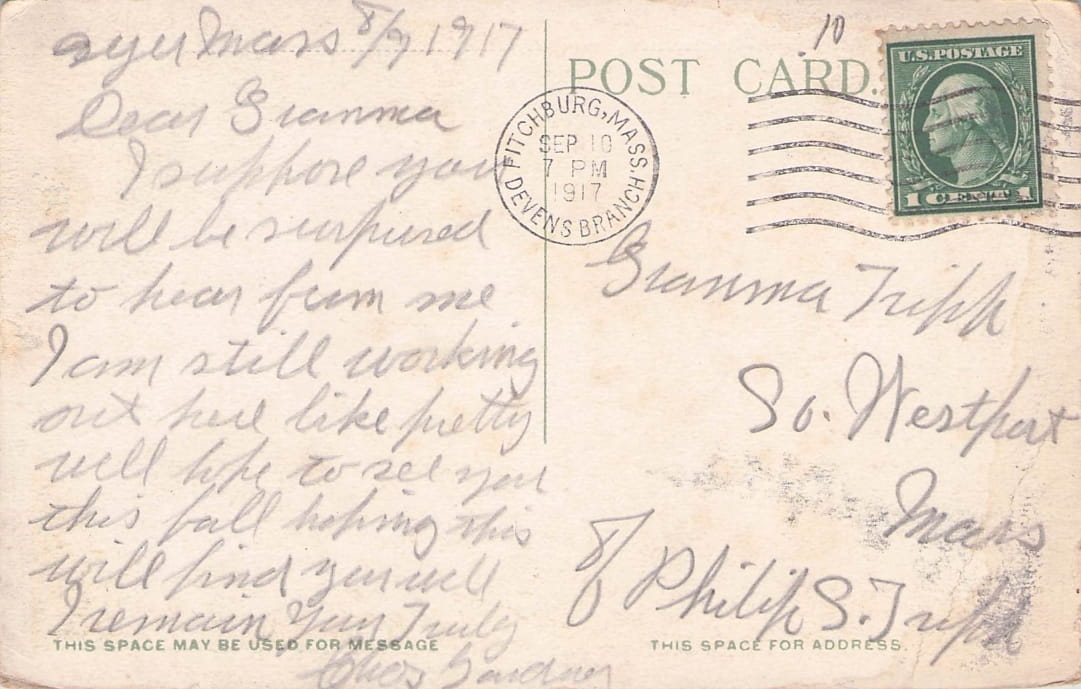 ayer Mass 8/9 1917
Dear Granma
I suppose you
will be surprised
to hear from me
I am still working
out here like pretty
well hope to see you
this fall hoping this
will find you well
I remain Your Truly
Chas
THIS SPACE MAY BE USED FOR MESSAGE
10
POST CARD.
U.S. POSTAGE
1 CENT 1
FITCHBURG, MASS.
SEP 10
7 PM
1917
DEVENS BRANCH
Granma Tripp
So. Westport
Mass
Philip S. Tripp
THIS SPACE FOR ADDRESS.